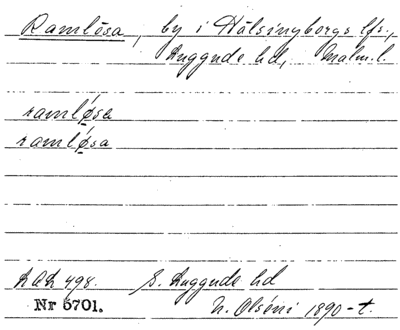 Ramlösa, by i Hälsingborgs lfs.,
Luggude hd, Malm. l.
ramlǿsa
ramlǿsa
LAL 498. S. Luggude hd
Nr 5701. N. Olséni 1890-t.